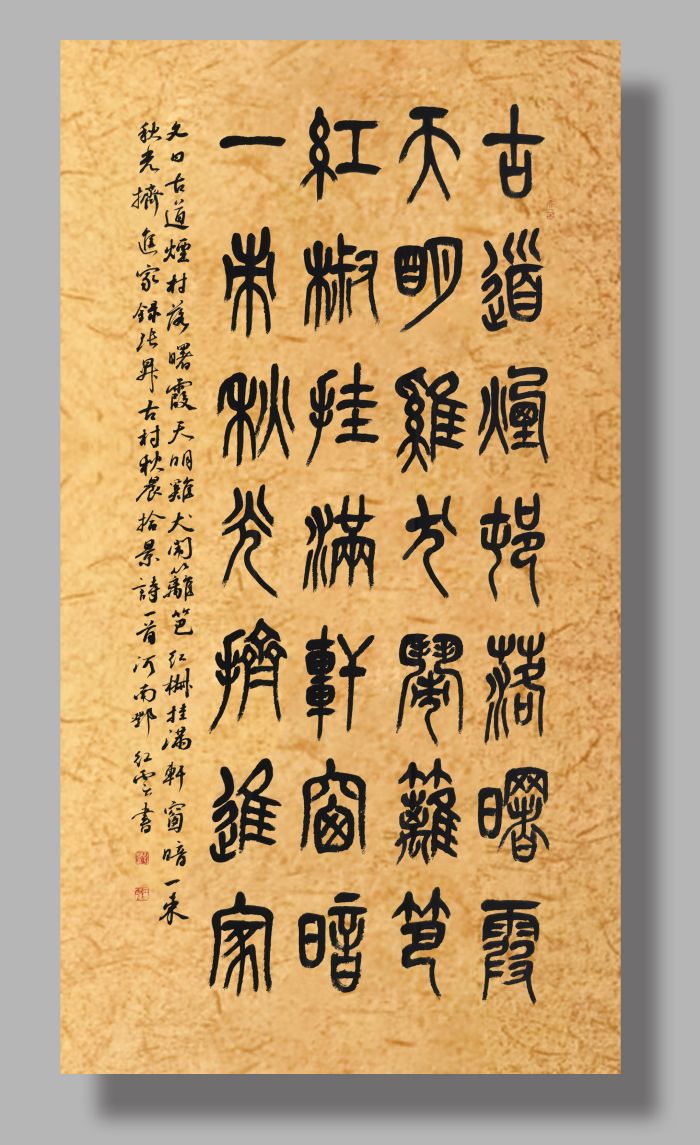 古道煙邨落曙霞
天明雞犬鬧籬笆
紅椒挂滿軒窗暗
一束秋光擠進家
文曰古道煙村落曙霞天明雞犬鬧籬笆红椒挂满軒窗暗一束
秋光擠進家錄張昇古村秋晨拾景詩一首河南鄧红雲書